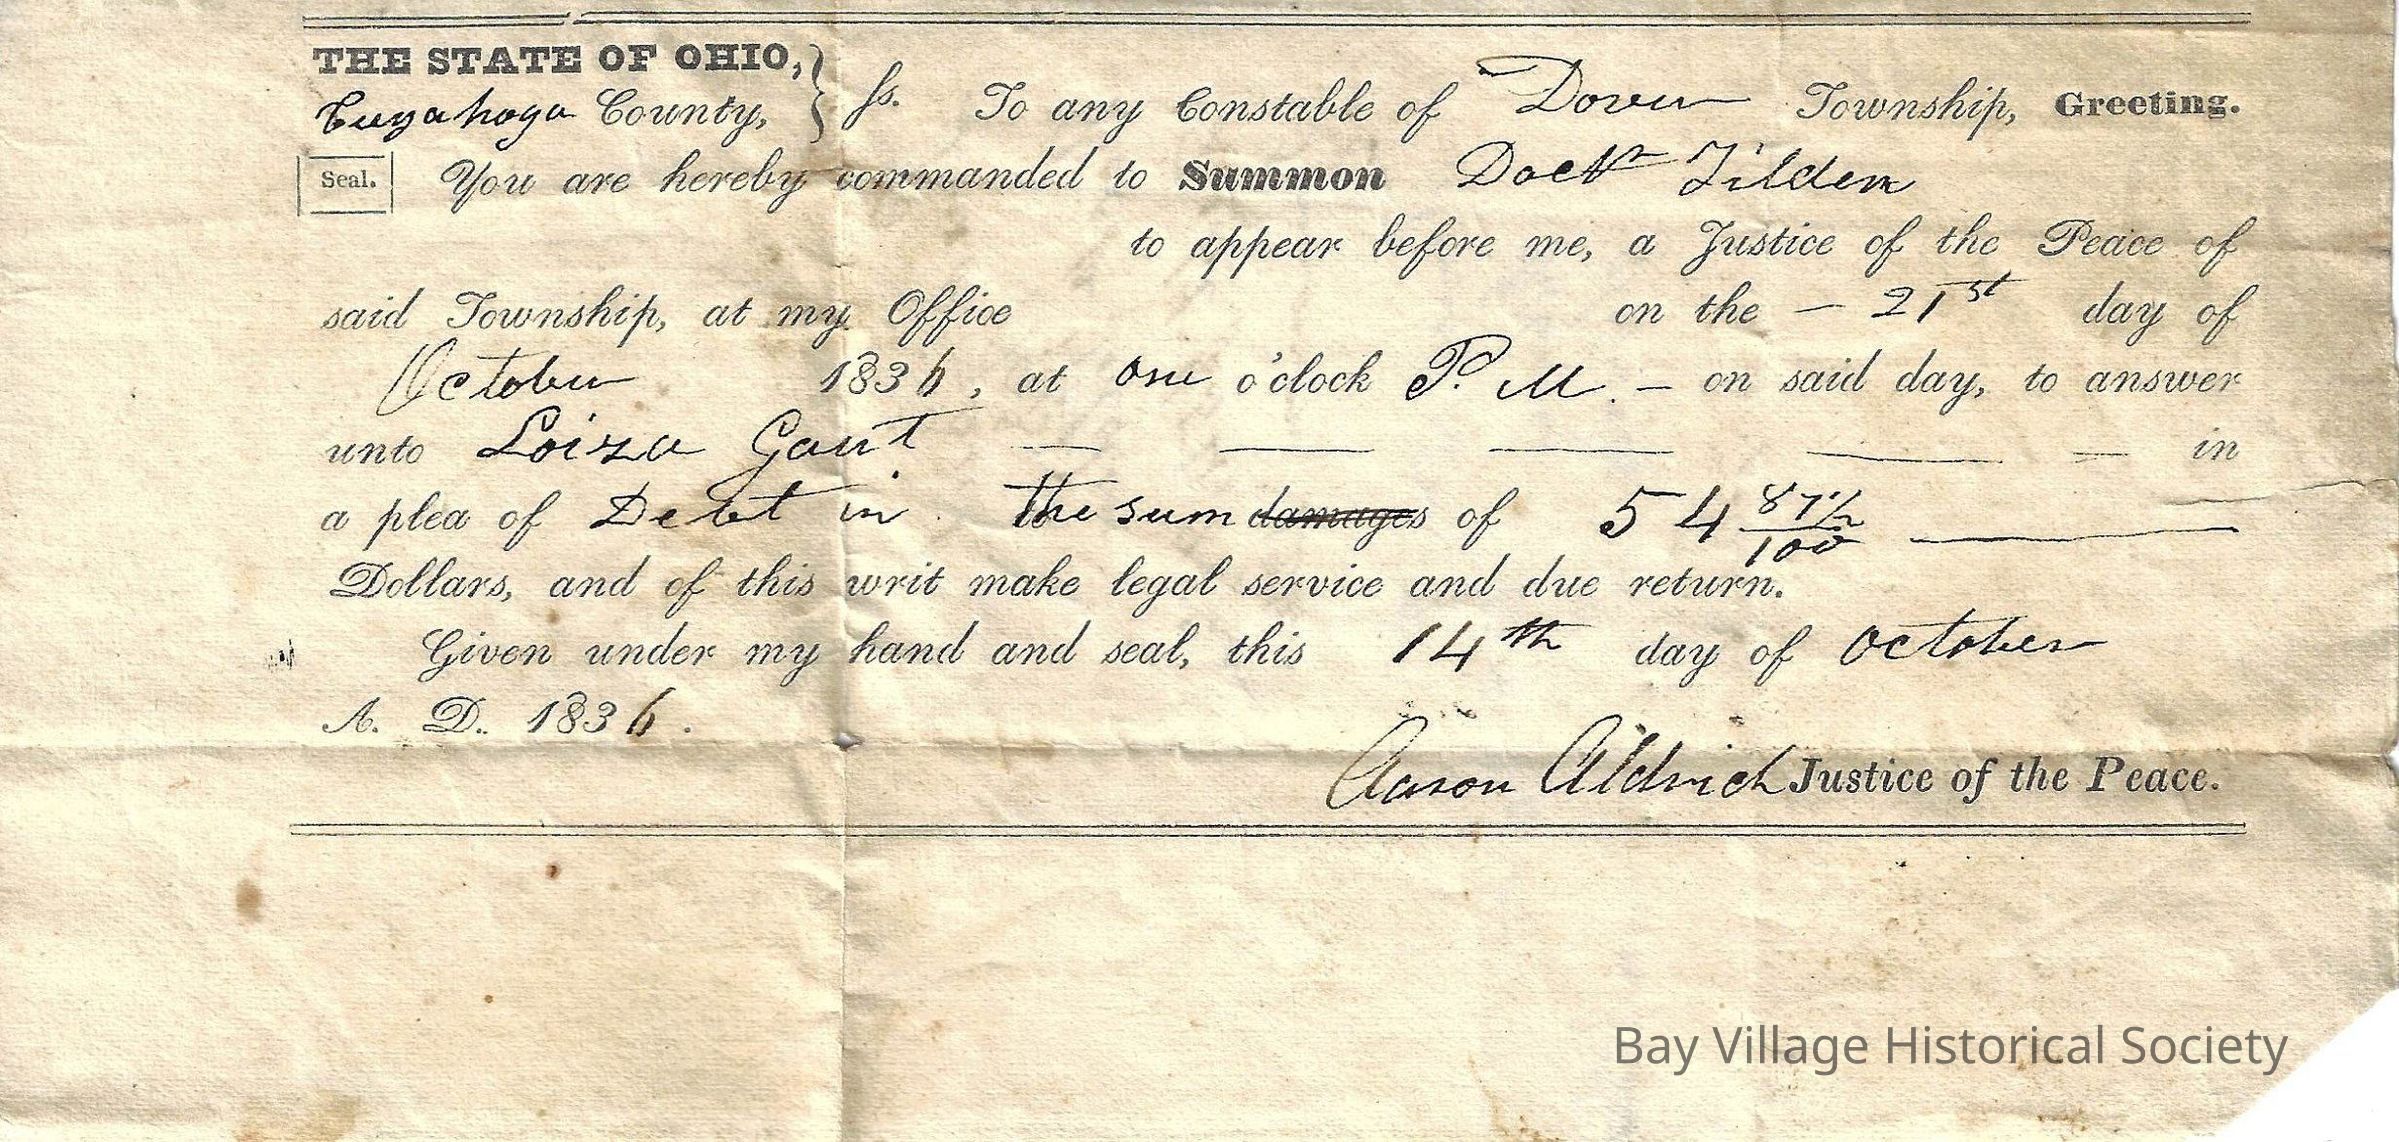 THE STATE OF OHIO,
Cuyahoga County, } ss. To any Constable of Dover Township, Greeting.
Seal. You are hereby commanded to Summon Doctr Tilden
to appear before me, a Justice of the Peace of
said Township, at my Office on the – 21st day of
October 1836, at one o'clock P. M. – on said day, to answer
unto Loiza Gant — — — — — in
a plea of Debt in the sum damages of 54 87½/100 —
Dollars, and of this writ make legal service and due return.
Given under my hand and seal, this 14th day of October
A. D. 1836.
Aaron Aldrich Justice of the Peace.
Bay Village Historical Society